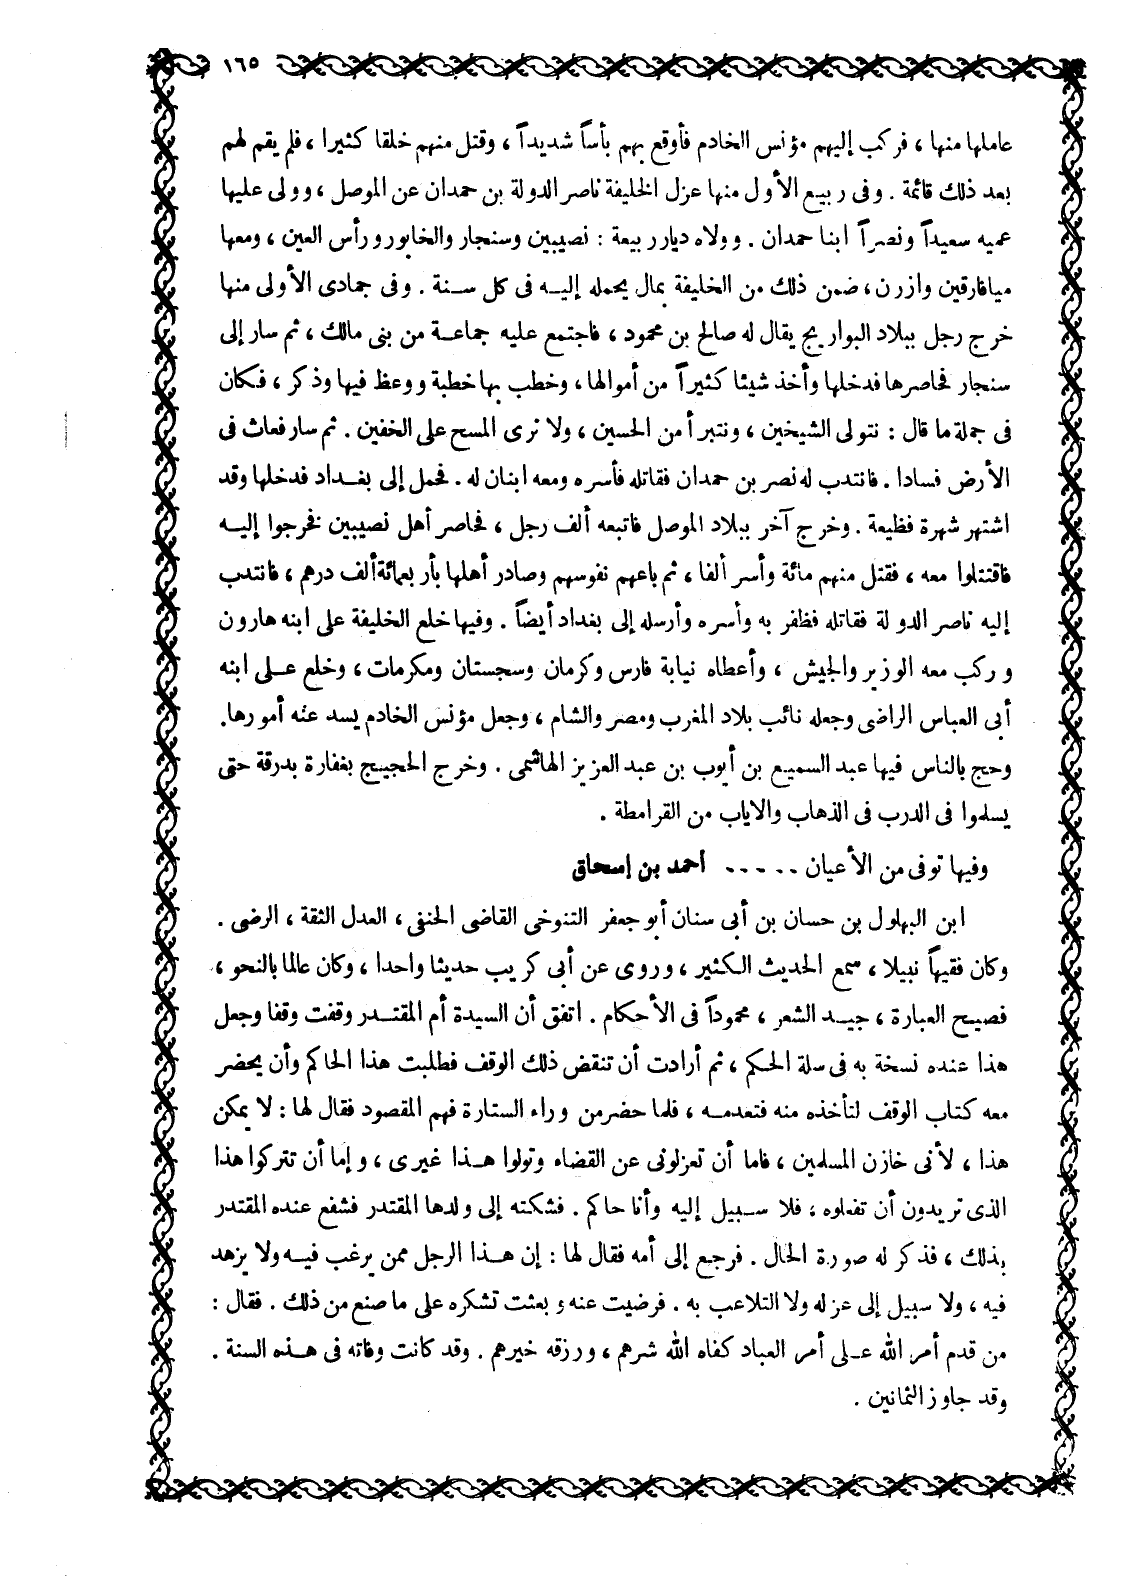 ١٦٥
عاملها منها ، فركب إليهم مؤنس الخادم فأوقع بهم بأساً شديداً ، وقتل منهم خلقا كثيرا ، فلم يقم لهم
بعد ذلك قائمة . وفى ربيع الأول منها عزل الخليفة ناصر الدولة بن حمدان عن الموصل ، وولى عليها
عميه سعيداً ونصراً ابنا حمدان . وولاه ديار ربيعة : نصيبين وسنجار والخابور ورأس العين ، ومعها
ميافارقين وازرن ، ضمن ذلك من الخليفة بمال يحمله إليه فى كل سنة . وفى جمادى الأولى منها
خرج رجل ببلاد البوازيج يقال له صالح بن محمود ، فاجتمع عليه جماعة من بنى مالك ، ثم سار إلى
سنجار فحاصرها فدخلها وأخذ شيئا كثيراً من أموالها ، وخطب بها خطبة ووعظ فيها وذكر ، فكان
فى جملة ما قال : نتولى الشيخين ، ونتبرأ من الحسين ، ولا نرى المسح على الخفين . ثم سار فعاث فى
الأرض فسادا . فانتدب له نصر بن حمدان فقاتله فأسره ومعه ابنان له . فحمل إلى بغداد فدخلها وقد
اشتهر شهرة فظيعة . وخرج آخر ببلاد الموصل فاتبعه ألف رجل ، فحاصر أهل نصيبين فخرجوا إليه
فاقتتلوا معه ، فقتل منهم مائة وأسر ألفا ، ثم باعهم نفوسهم وصادر أهلها بأربعمائة ألف درهم ، فانتدب
إليه ناصر الدولة فقاتله فظفر به وأسره وأرسله إلى بغداد أيضاً . وفيها خلع الخليفة على ابنه هارون
وركب معه الوزير والجيش ، وأعطاه نيابة فارس وكرمان وسجستان ومكرمات ، وخلع على ابنه
أبى العباس الراضى وجعله نائب بلاد المغرب ومصر والشام ، وجعل مؤنس الخادم يسد عنه أمورها.
وحج بالناس فيها عبد السميع بن أيوب بن عبد العزيز الهاشمى . وخرج الحجيج بغفارة بدرقة حتى
يسلموا فى الدرب فى الذهاب والاياب من القرامطة .
وفيها توفى من الأعيان ..... أحمد بن إسحاق
ابن البهلول بن حسان بن أبى سنان أبو جعفر التنوخى القاضى الحنفى ، العدل الثقة ، الرضى .
وكان فقيهاً نبيلا ، سمع الحديث الكثير ، وروى عن أبى كريب حديثا واحدا ، وكان عالما بالنحو ،
فصيح العبارة ، جيد الشعر ، محموداً فى الأحكام . اتفق أن السيدة أم المقتدر وقفت وقفا وجعل
هذا عنده نسخة به فى سلة الحكم ، ثم أرادت أن تنقض ذلك الوقف فطلبت هذا الحاكم وأن يحضر
معه كتاب الوقف لتأخذه منه فتعدمه ، فلما حضر من وراء الستارة فهم المقصود فقال لها : لا يمكن
هذا ، لأنى خازن المسلمين ، فاما أن تعزلونى عن القضاء وتولوا هذا غيرى ، وإما أن تتركوا هذا
الذى تريدون أن تفعلوه ، فلا سبيل إليه وأنا حاكم . فشكته إلى ولدها المقتدر فشفع عنده المقتدر
بذلك ، فذكر له صورة الحال . فرجع إلى أمه فقال لها : إن هذا الرجل ممن يرغب فيه ولا يزهد
فيه ، ولا سبيل إلى عزله ولا التلاعب به . فرضيت عنه وبعثت تشكره على ما صنع من ذلك . فقال :
من قدم أمر الله على أمر العباد كفاه الله شرهم ، ورزقه خيرهم . وقد كانت وفاته فى هذه السنة .
وقد جاوز الثمانين .